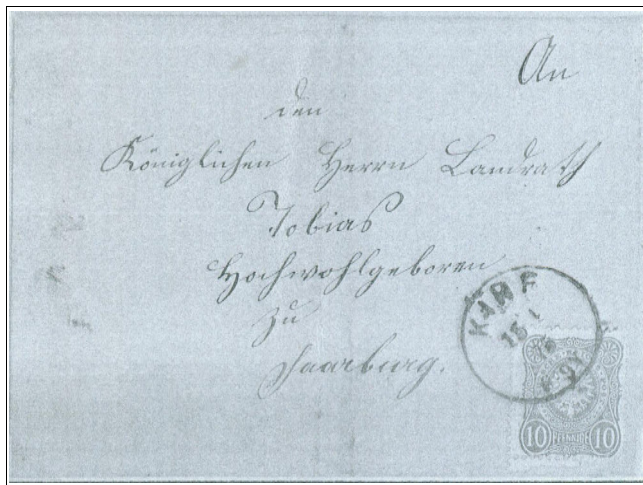 An
den
Königlichen Herrn Landrath
Tobias
Hochwohlgeboren
zu
Saarburg.
10 PFENNIGE 10